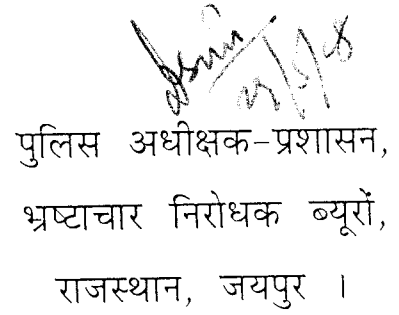 पुलिस अधीक्षक-प्रशासन,
भ्रष्टाचार निरोधक ब्यूरों,
राजस्थान, जयपुर ।